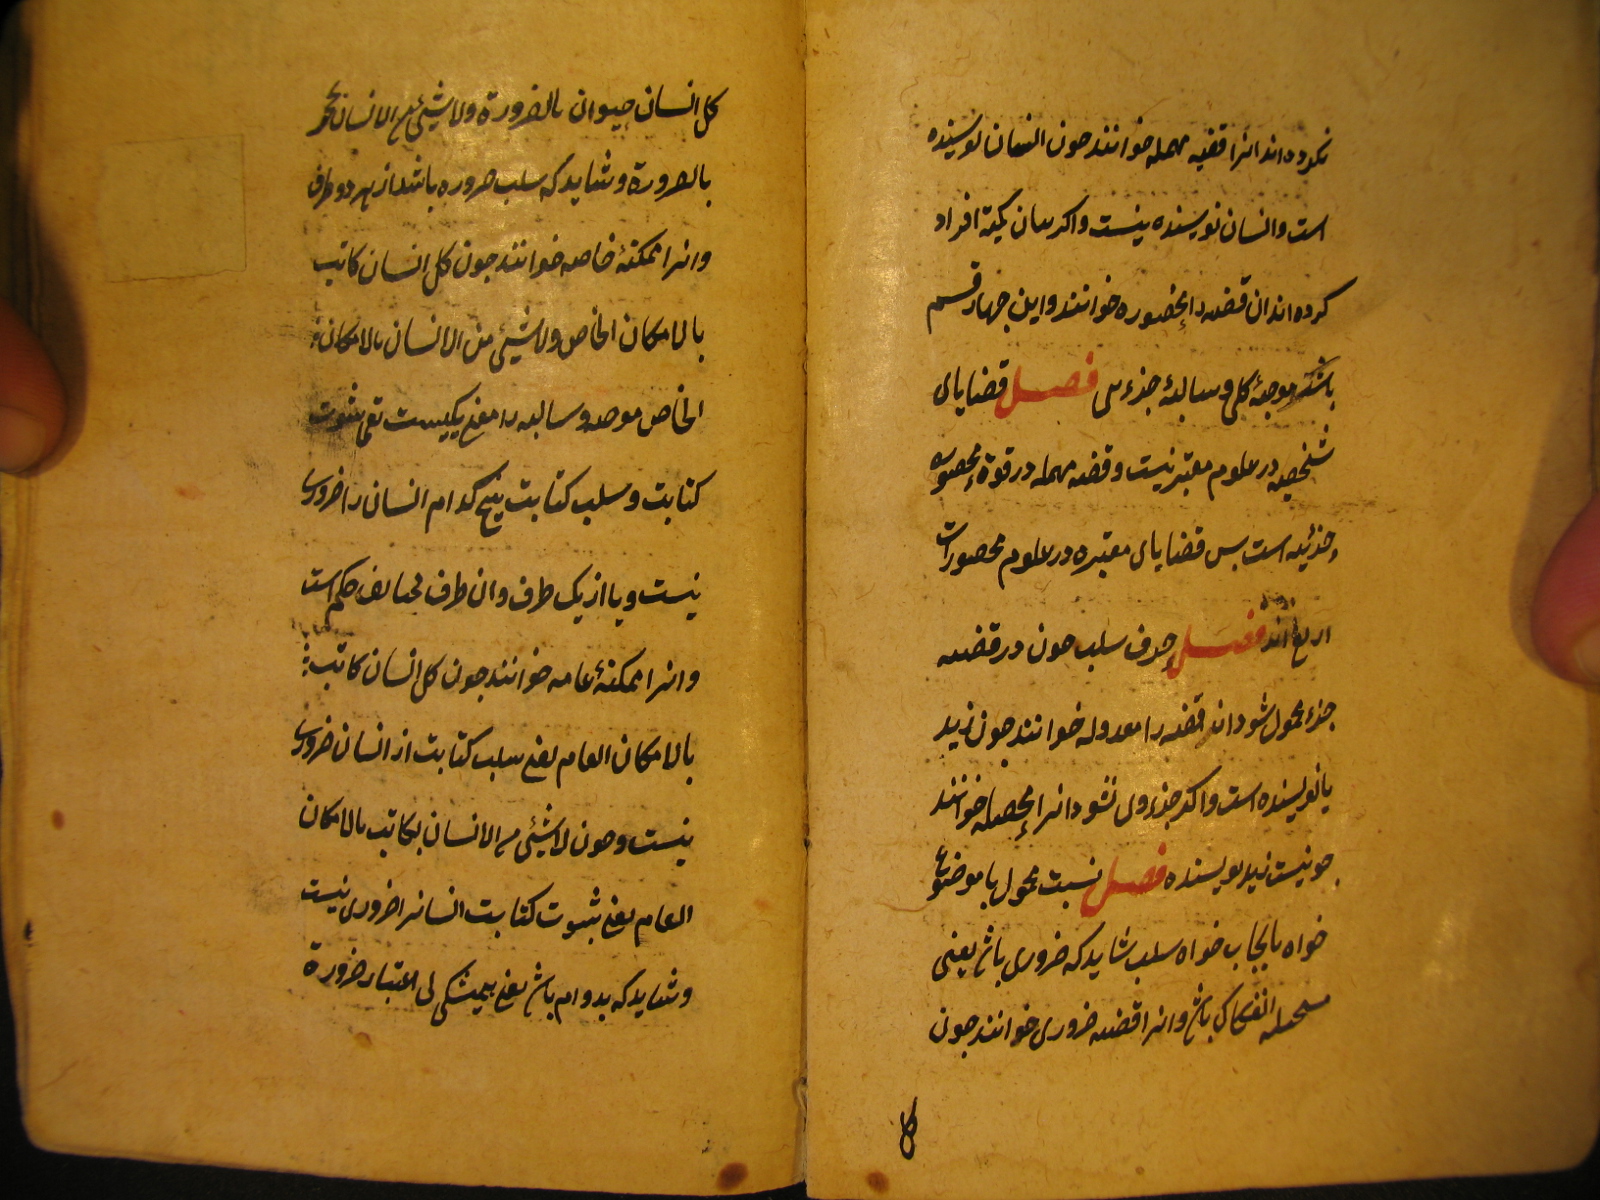 نکرده اند انرا قضیه مهمله خوانند چون انسان نویسنده
است و انسان نویسنده نیست و اکر بیان کمیة افراد
کرده اند ان قضیه را محصوره خوانند و این چهار قسم
باشد موجبهٔ کلی و سالبهٔ جزءی فصل قضایای
شخصیه در علوم معتبر نیست و قضیه مهمله در قوة محصوره
جزئیه است بس قضایای معتبره در علوم محصورات
اربع اند فصل حرف سلب چون در قضیه
جزء محمول شود انقضیه را معدوله خوانند چون زید
نانویسنده است و اکر جزء ول نشود انرا محصله خوانند
چو نیست زید نویسنده فصل نسبت محمول با موضوع
خواه بایجاب خواه سلب شاید که ضروری باشد یعنی
مستحیله انفکاک باشد و انرا قضیه ضروری خوانند چون
کل
کل انسان حیوان بالضرورة ولا شیئ من الانسان بحجر
بالضرورة و شاید که سلب ضروره باشد از هر دو طرف
و انرا ممکنهٔ خاصه خوانند چون کل انسان کاتب
بالامکان الخاص ولا شیئ من الانسان بالامکان
الخاص موجبه و سالبه را معنی یکیست یعنی ثبوت
کتابت و سلب کتابت هیچ کدام انسان را ضروری
نیست و یا از یک طرف و ان طرف مخالف حکم است
و انرا ممکنهٔ عامه خوانند چون کل انسان کاتب
بالامکان العام یعنی سلب کتابت از انسان ضروری
نیست و چون لا شیئ من الانسان بکاتب بالامکان
العام یعنی ثبوت کتابت انسانرا ضروری نیست
و شاید که بدوام باشد یعنی همیشکی بی اعتبار ضرورة